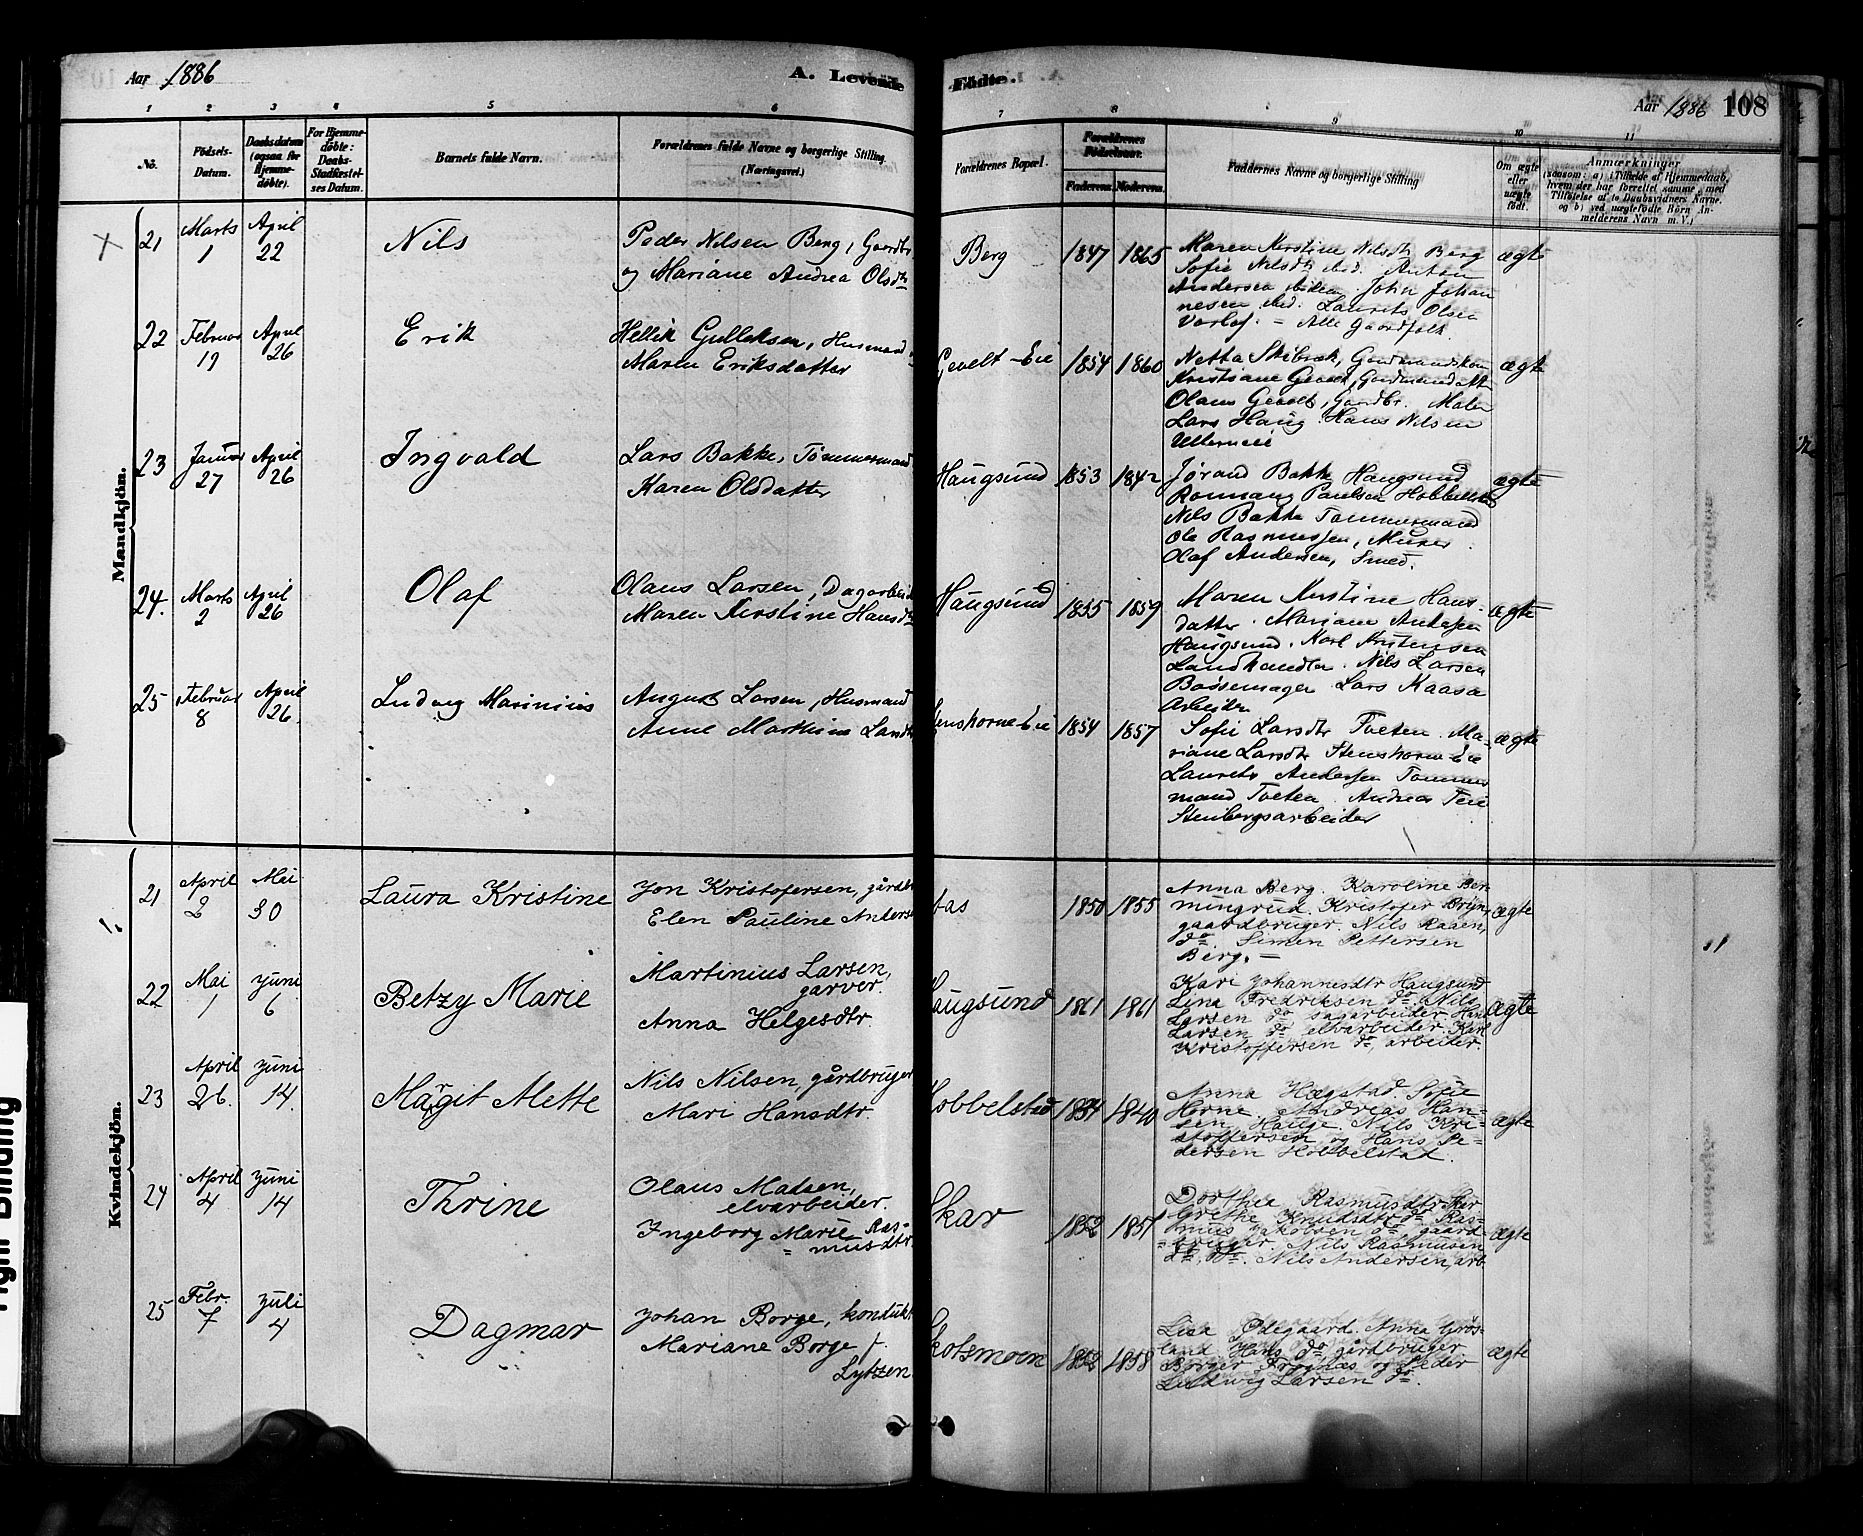 Aar 1886
A. Levende Födte.
Aar 1886 108
1 2 3 4 5 6 7 8 9 10 11
No.
Födsels-Datum.
Daabsdatum (ogsaa for Hjemme-döbte).
For Hjemme-döbte: Daabs-Stadfæstel-ses Datum.
Barnets fulde Navn.
Forældrenes fulde Navne og borgerlige Stilling.
(Næringsvei.)
Forældrenes Bopæl.
Forældrenes Födselsaar.
Faderens. Moderens.
Faddernes Navne og borgerlige Stilling
Om ægte eller uægte födt.
Anmærkninger
(saasom: a) i Tilfælde af Hjemmedaab,
hvem der har forrettet samme, med
Tilföielse af to Daabsvidners Navne,
og b) ved uægtefödte Börn An-
melderens Navn m. V.)
Mandkjön.
21 Marts 1 April 22 Nils
Peder Nilsen Berg, Gaardbr
og Mariane Andrea Olsdtr
Berg 1847 1865
Maren Kerstine Nilsdtr Berg
Sofie Nilsdtr ibid. Anton
Andersen ibidem John Johan
nesen ibid. Laurits Olsen
Varlof. – Alle Gaardfolk
ægte
22 Februar 19 April 26 Erik
Hellik Gulleksen, Husmand
Maren Eriksdatter
Gevelt-Eie 1854 1860
Netta Skibræk, Gaardmandskone
Kristiane Gevelt, Gaardmandsdatter
Olaus Gevelt, Gaardbr. Maler
Lars Haug. Hans Nilsen
ægte
23 Januar 27 April 26 Ingvald
Lars Bakke, Tömmermand
Karen Olsdatter
Haugsund 1853 1842
Jörand Bakke Haugsund
Ronnaug Paulsen Hobbelstad
Nils Bakke Tömmermand
Ole Rasmussen, Murer
Olaf Andersen, Smed.
ægte
24. Marts 2 April 26 Olaf
Olaus Larsen, Dagarbeid
Maren Kerstine Hansdtr
Haugsund 1855 1859
Maren Kerstine Hans-
datter. Mariane Andersen
Haugsund. Karl Kristensen
Landhandler. Nils Larsen
Bössemager Lars Kaasa
Arbeider
ægte
25 Februar 8 April 26. Ludvig Marinius
August Larsen, Husmand
Anne Marthine Larsdtr
Stenshorne-Eie 1854 1857
Sofie Larsdtr Tveten. Ma-
riane Larsdtr Stenshorne Eie
Laurits Andersen Tømmer
mand Tveten. Andreas Teie
Stenbergsarbeider
ægte
Kvindekjön.
21 April 2 Mai 30 Laura Kristine
Jon Kristofersen, gårdbr
Elen Pauline Anders
Aas 1850 1855
Anna Berg. Karoline Ben
mingrud. Kristofer Bryn,
gaardbruger. Nils Raaen,
do. Simen Pettersen
Berg. –
ægte
22 Mai 1 Juni 6 Betzy Marie
Martinius Larsen,
garver.
Anna Helgesdtr.
Haugsund 1861 1861
Kari Johannesdtr Haugsund
Lina Fredriksen do. Nils
Larsen do sagarbeider Hans
Larsen do elvarbeider. Karl
Kristoffersen do, arbeider.
ægte
23 April 26. Juni 14. Margit Mette
Nils Nilsen, gårdbruger
Mari Hansdtr.
Hobbelstad 1834 1840
Anna Hægstad. Sofie
Horne. Andreas Han-
sen, Hauge. Nils Kri-
stoffersen og Hans Pe-
dersen Hobbelstad.
ægte
24 April 4 Juni 14 Thrine
Olaus Matsen,
elvarbeider.
Ingeborg Marie Ras-
musdtr.
Skar 1852 1857
Dorthea Rasmusdtr Skar
Grethe Knudsdtr do Ras-
mus Jakobsen do gaard-
bruger. Nils Rasmusen
do, do. Nils Andersen, arb
ægte
25 Febr. 7 Juli 4 Dagmar
Johan Borge, kondukt
Mariane Borge f.
Lytzen.
Skotsmoen 1852 1858
Lisa Ødegaard. Anna Grös-
land, Hans do gårdbruger
Borger Frognæs og Peder
Ludwig Larsen do.
ægte